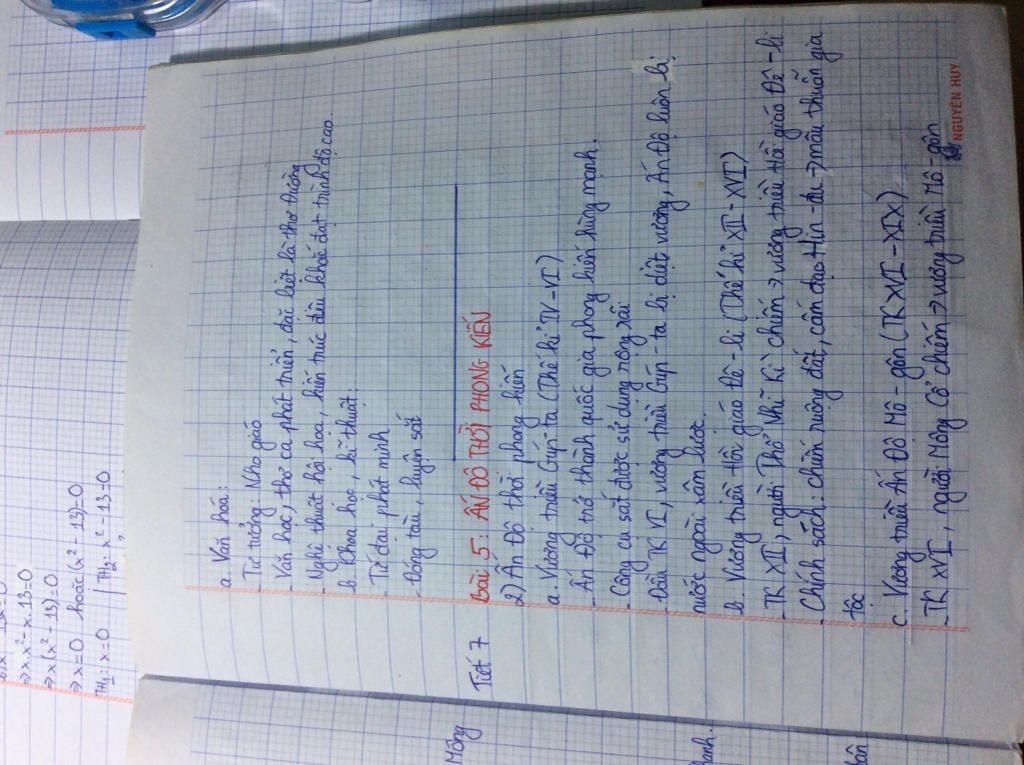 ⇒ x.x² - x.13=0
⇒ x(x² - 13)=0
⇒ x=0 hoặc (x² - 13)=0
TH₁: x=0 | TH₂: x² - 13=0
a. Văn hoá:
- Tư tưởng: Nho giáo
Văn học, thơ ca phát triển, đặc biệt là thơ Đường
- Nghệ thuật hội họa, kiến trúc đều khoé đạt trình độ cao
b. Khoa học, kĩ thuật:
- Tứ đại phát minh
- Đóng tàu, luyện sắt
Tiết 7 Bài 5: ẤN ĐỘ THỜI PHONG KIẾN
2) Ấn Độ thời phong kiến
a. Vương triều Gúp-ta (Thế kỉ IV-VI)
- Ấn Độ trở thành quốc gia phong kiến hùng mạnh.
- Công cụ sắt được sử dụng rộng rãi
- Đầu TK VI, vương triều Gúp-ta bị diệt vương, Ấn Độ luôn bị
nước ngoài xâm lược.
b. Vương triều Hồi giáo Đê-li (Thế kỉ XII-XVI)
- TK XII, người Thổ Nhĩ Kì chiếm → vương triều Hồi giáo Đê-li
- Chính sách: chiếm ruộng đất, cấm đạo Hin-đu → mâu thuẫn giữa
tộc
c. Vương triều Ấn Độ Mô-gôn (TK XVI - XIX)
- TK XVI, người Mông Cổ chiếm → vương triều Mô-gôn
NGUYÊN HUY
Mông
hanh.